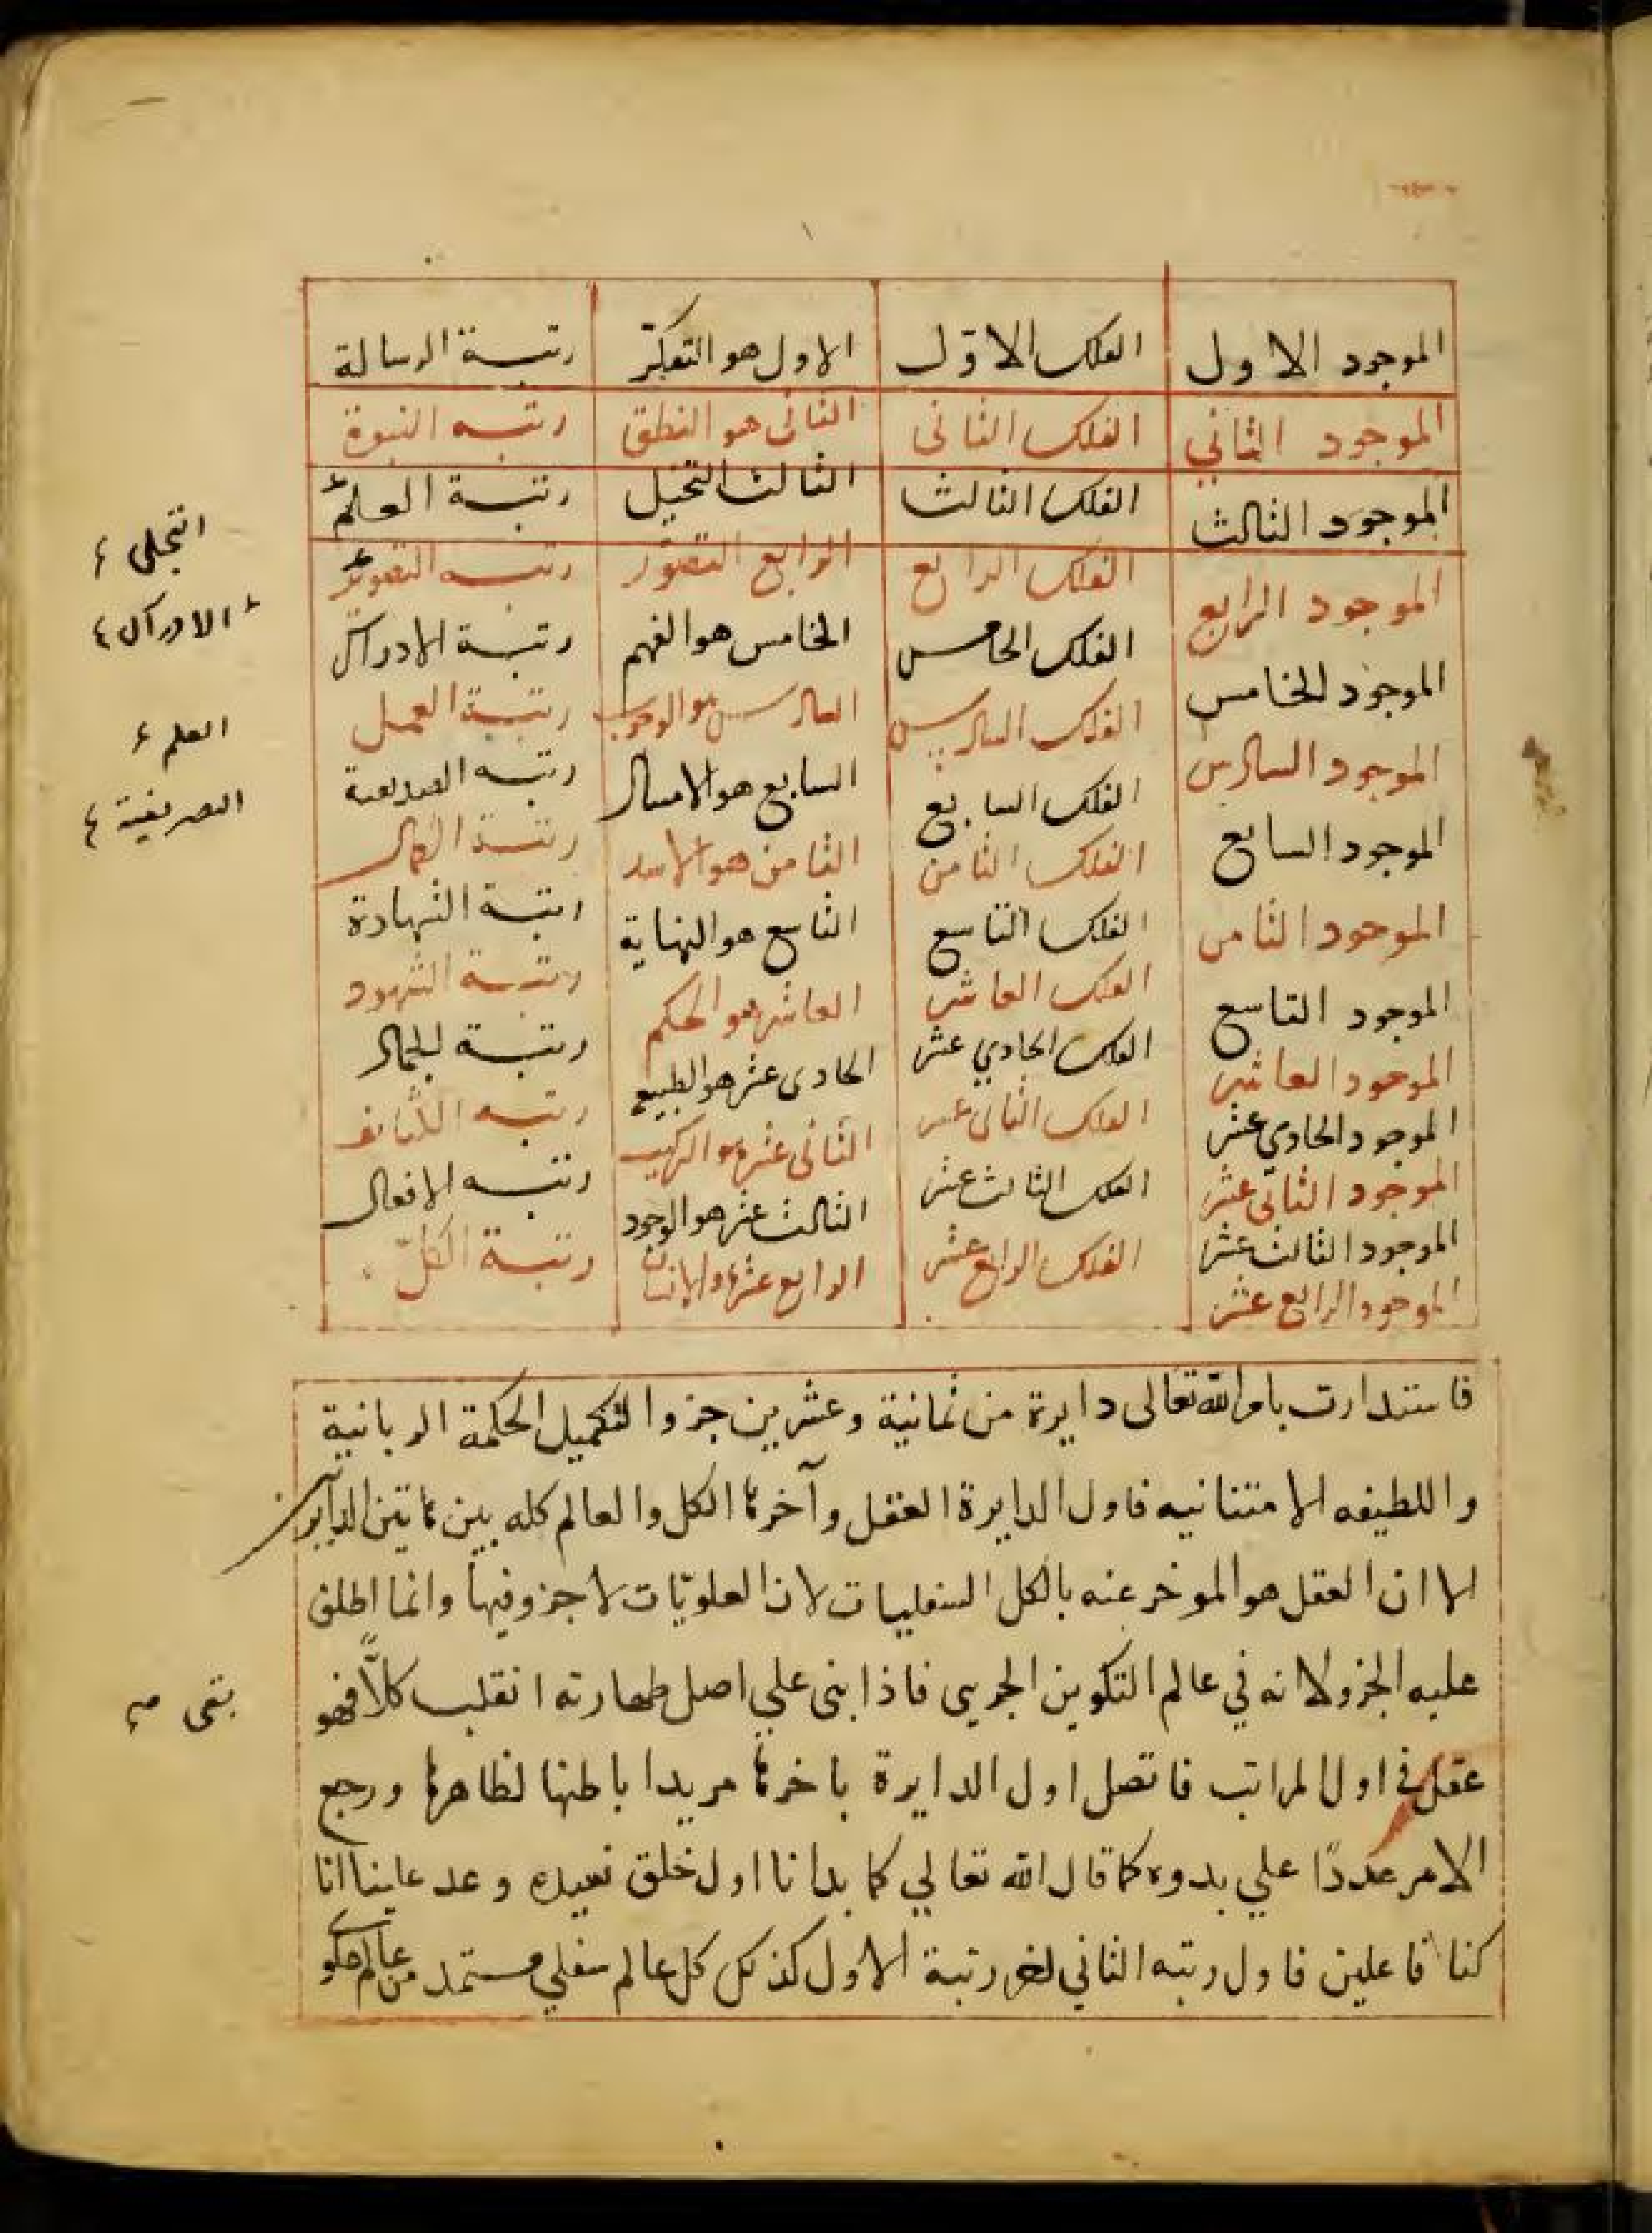 الموجود الاول الفلك الاول الاول هو التفكر رتبة الرسالة
الموجود الثاني الفلك الثاني الثاني هو النطق رتبه النبوة
الموجود الثالث الفلك الثالث الثالث التخيل رتبة العلم
الموجود الرابع الفلك الرابع الرابع التصور رتبه
الموجود الخامس الفلك الخامس الخامس هو الفهم رتبة الادراك
الموجود السادس الفلك السادس السادس هو رتبة العمل
الموجود السابع الفلك السابع السابع هو رتبه
الموجود الثامن الفلك الثامن الثامن هو رتبة الكمال
الموجود التاسع الفلك التاسع التاسع هو النهاية رتبة الشهادة
الموجود العاشر الفلك العاشر العاشر هو الحكم رتبة الشهود
الموجود الحادي عشر الفلك الحادي عشر الحادى عشر هو الطبيع رتبة الجمال
الموجود الثانى عشر الفلك الثانى عشر الثانى عشر هو التركيب رتبه
الموجود الثالث عشر الفلك الثالث عشر الثالث عشر هو الوجود رتبه الافعال
الموجود الرابع عشر الفلك الرابع عشر الرابع عشر هو الانسان رتبة الكلّ
التجلى
الادراك
العلم
فاستدارت بامر الله تعالى دايرة من ثمانية وعشرين جزوا لتكميل الحكمة الربانية
واللطيفه الامتنانيه فاول الدايرة العقل وآخرها الكل والعالم كله بين هاتين
الا ان العقل هو الموخر عنه بالكل السفليات لان العلويّات لا جزو فيها وانما اطلق
عليه الجزو لانه في عالم التكوين الجزيى فاذا بنى علي اصل طهارته انقلب كلاّ فهو
بقى
عقل في اول المراتب فاتصل اول الدايرة باخرها مريدا باطنها لظاهرها ورجع
الامر عددًا علي بدوه كما قال الله تعالي كما بدانا اول خلق نعيده وعد علينا انا
كنا فاعلين فاول رتبه الثاني رتبة الاول كذلك كل عالم سفلي مستمد من عالم